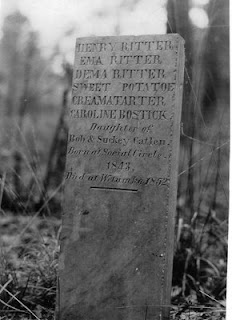 HENRY RITTER
EMA RITTER
DEMA RITTER
SWEET POTATOE
CREAMATARTER
CAROLINE BOSTICK
Daughter of
Bob & Suckey Catlen.
Born at Social Circle,
1843,
Died at Wetumpka 1852.